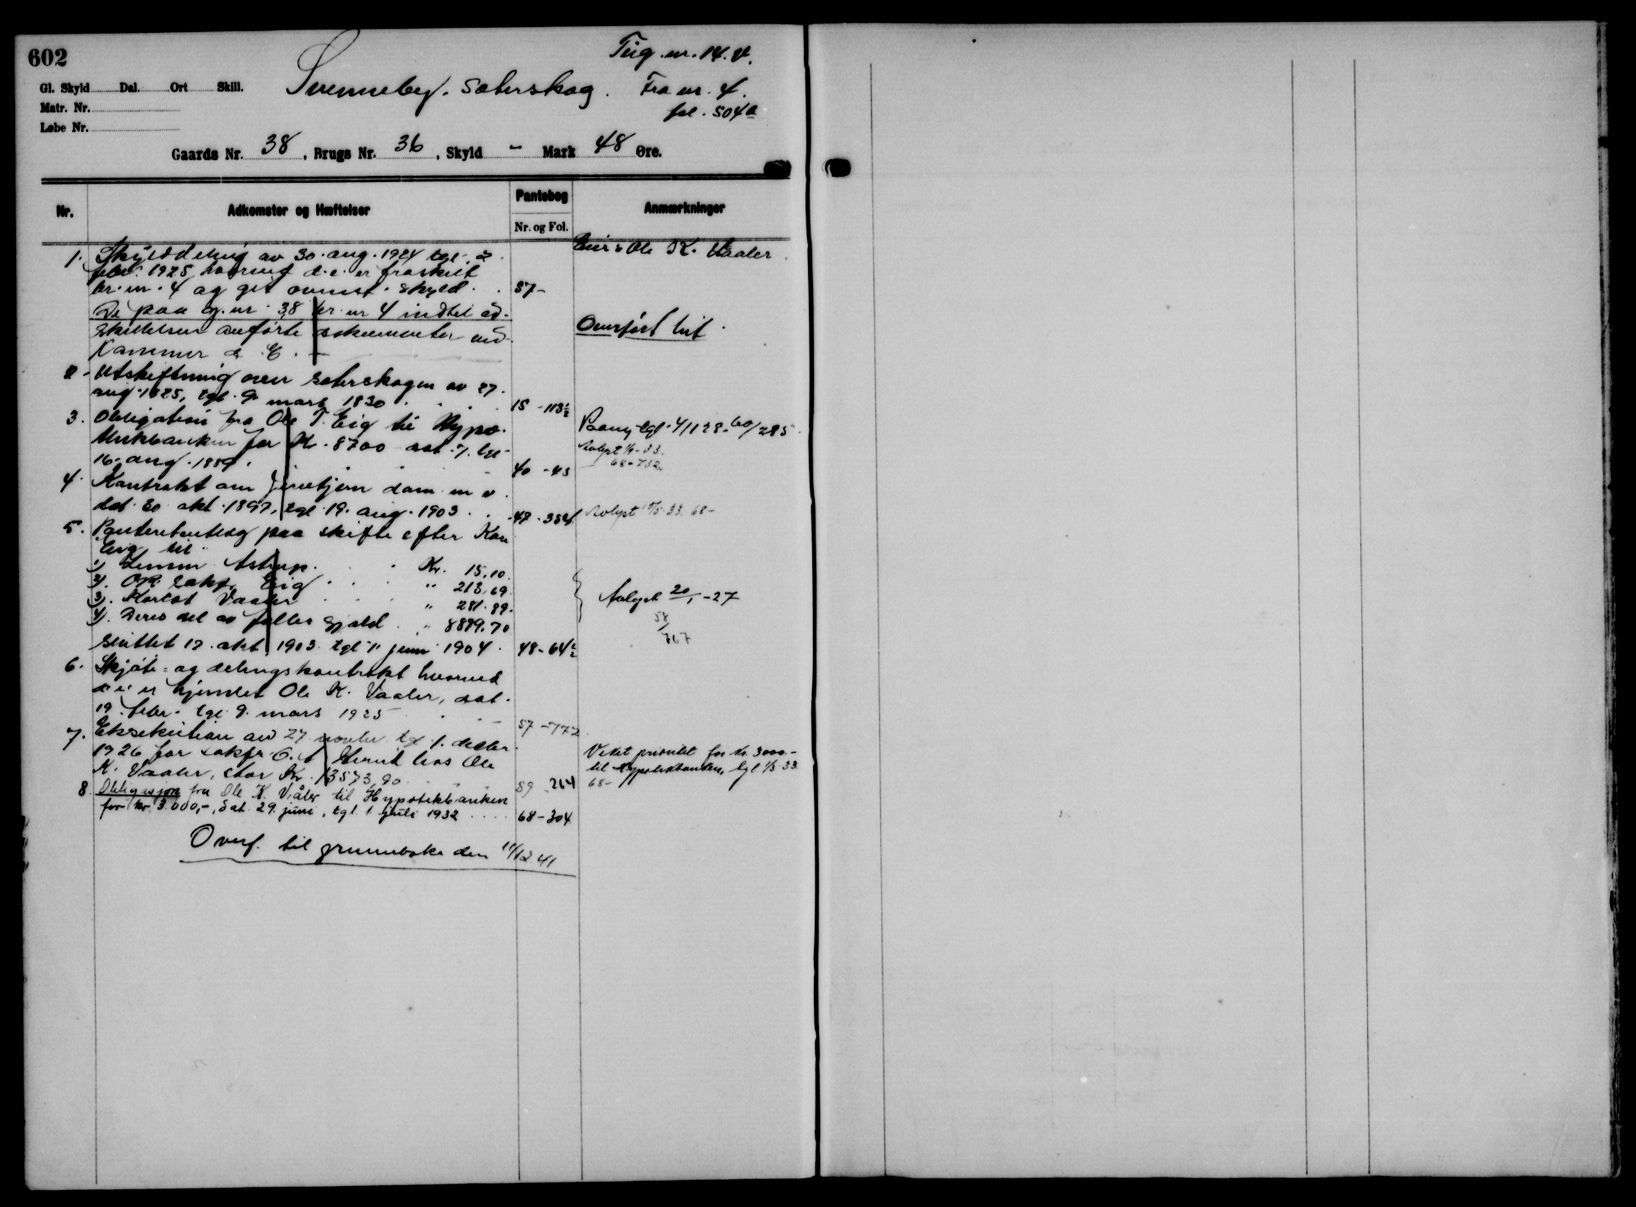 602
Teig. nr. 14. V.
Svenneby. Sæterskog.
Fra nr. 4.
fol. 504a
Gl. Skyld Dal. Ort Skill.
Matr. Nr.
Løbe Nr.
Gaards Nr. 38, Brugs Nr. 36, Skyld - Mark 48 Øre.
Nr.
Adkomster og Hæftelser
Pantebog
Nr. og Fol.
Anmærkninger
1. Skylddeling av 30. aug. 1924 tgl. 2.
febr. 1925, hvorved d. e. er fraskilt
br. nr. 4 og git ovenst. skyld. 57-
Eier: Ole K. Vaaler.
De paa g. nr. 38 br. nr 4 indtil ad-
skillelsen anførte dokumenter ved-
kommer d. E. -
Overført hit.
2. Utskiftning over Sæterskogen av 27.
aug. 1825, tgl. 9. mars 1830. 15 - 113½
3. Obligation fra Ole T. Eig til Hypo-
thekbanken for Kr. 8700 dat. 7. tgl.
16. aug. 1889. 40 - 43
tgl. 4/1128. 60/285
Avlyst 33.
68 - 732.
4. Kontrakt om dam m. v.
dat. 30 okt. 1897, tgl. 19. aug. 1903. 47 - 354
Avlyst 33. 68-
5. Panteretutlæg paa skifte efter Kari
Eig til
1) Astrup. Kr. 15,10.
2). O.R. sakf. Eig " 213,69
3). Karlot Vaaler " 281.89.
4). Deres del av fælles gjæld. " 8889.70
sluttet 17. okt. 1903. tgl. 7. juni 1904. 48 - 64½
Avlyst 20/1 - 27
58/767
6. Skjøte- og delingskontrakt hvorved
d. e. er hjemlet Ole K. Vaaler, dat.
19. febr. tgl. 9. mars 1925 57 - 772
7. Eksekution avd 27 novbr. tgl 1. desbr.
1926 for sakfr. O. hos Ole
K. Vaaler, stor Kr. 13573,90. 59 - 264
Veket prioritet for kr. 3000.-
til Hypotekbanken, tgl 33
68-
8. Obligasjon fra Ole K. Våler til Hypotekbanken
for kr. 3.000,-, dat. 29. juni, tgl. 1 juli 1932 . . . . 68 - 304
Overf. til grunnboka den 11/12 41